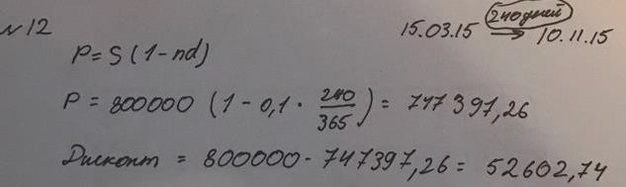 №12
240 дней
15.03.15 → 10.11.15
P = S (1 - nd)
P = 800000 (1 - 0,1 · 240/365) = 747397,26
Дисконт = 800000 - 747397,26 = 52602,74